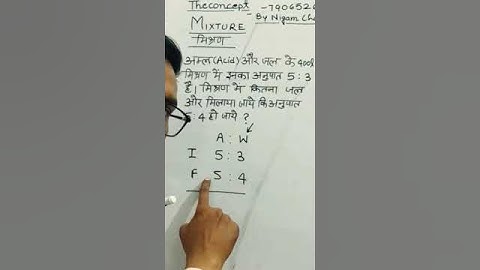 Theconcept
-790652
MIXTURE
By Nigam
मिश्रण
अम्ल (Acid) और जल के 400
मिश्रण में इनका अनुपात 5 : 3
है। मिश्रण में कितना जल
और मिलाया जाये कि अनुपात
: 4 हो जाये ?
A : W
I 5 : 3
F 5 : 4